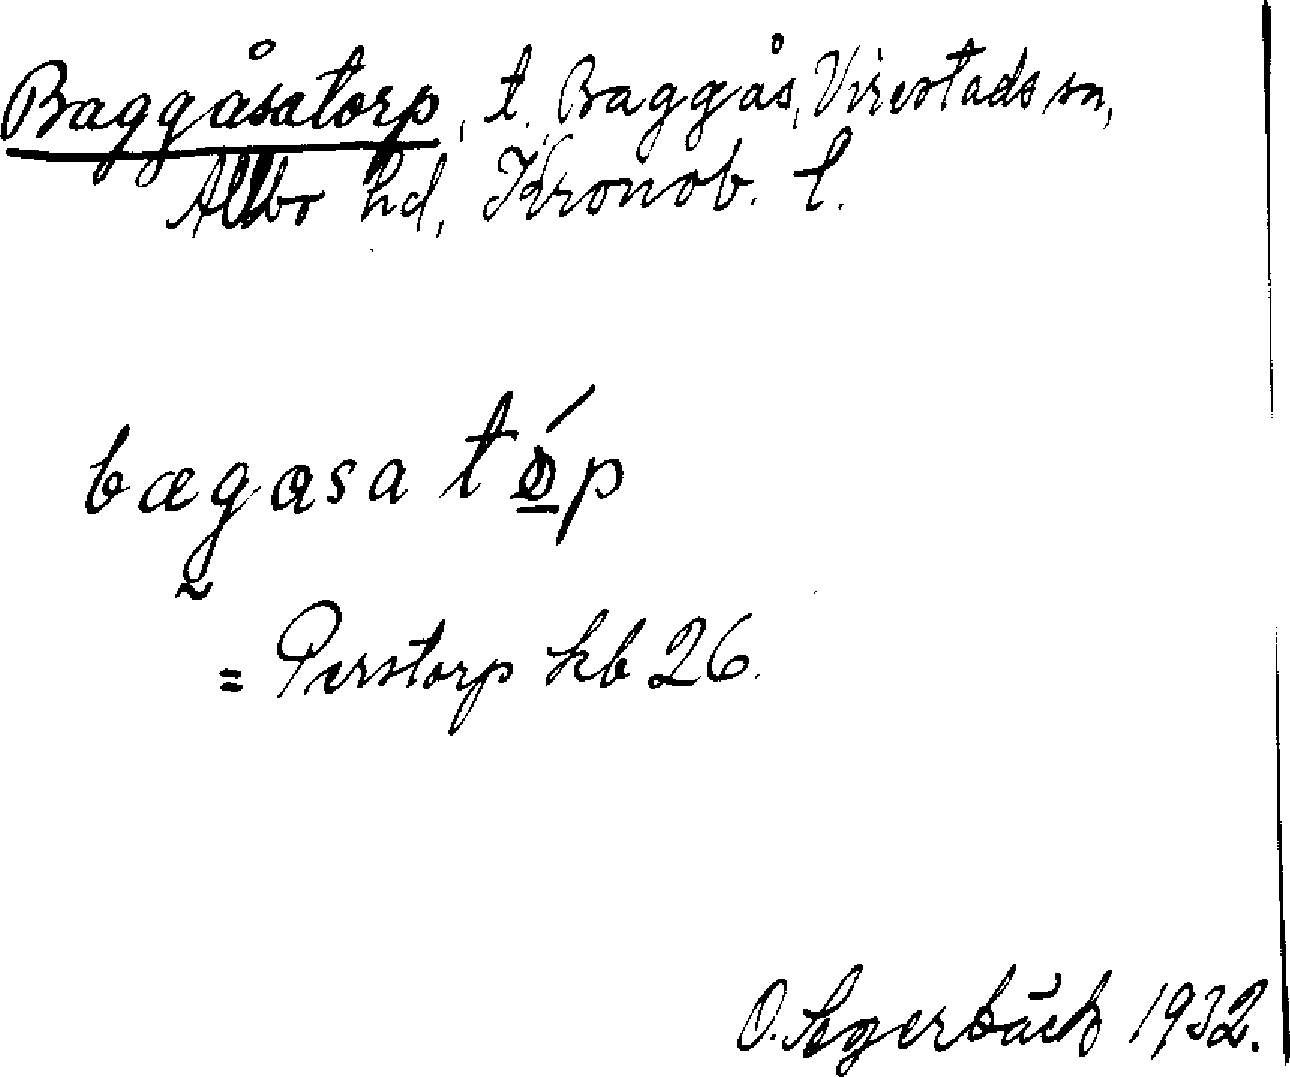 Baggåsatorp, t. Baggås, Virestads sn,
Allbo hd, Kronob. l.
bægasa tóp
= Perstorp kb 26.
O. Agerbäck 1932.